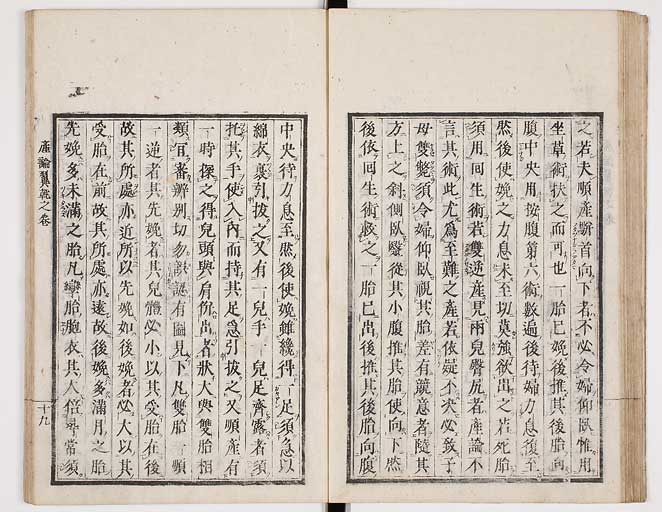 之若夫順產騈首向下者不必令婦仰臥惟用
坐草術狀之而可也一胎已娩後推其後胎向
腹中央用按腹第六術數遍後待婦力息復至
然後使娩之力息未至切莫強欲出之若死胎
須用回生術若雙逆產見兩兒臀尻者產論不
言其術此尤爲至難之產若依疑不決必致子
母雙斃須令婦仰臥視其胎差有竸意者隨其
方上之斜側臥醫從其小腹推其胎使向下然
後依回生術救之一胎已出後推其後胎向腹
中央待力息至然後使娩雖纔得一足須急以
綿衣裹引拔之又有一兒手一兒足齊露者須
托其手使入內而持其足急引拔之又順產有
一時探之得兒頭與肩份出者狀大與雙胎相
類冝審辨別切勿誤認有圖見下凡雙胎一順
一逆者其先娩者其兒體必小以其受胎在後
故其所處亦近所以先娩如後娩者必大以其
受胎在前故其所處亦遠故後娩多滿月之胎
先娩多未滿之胎凡孿胎胞衣其人倍尋常須
產論翼乾之卷
十九